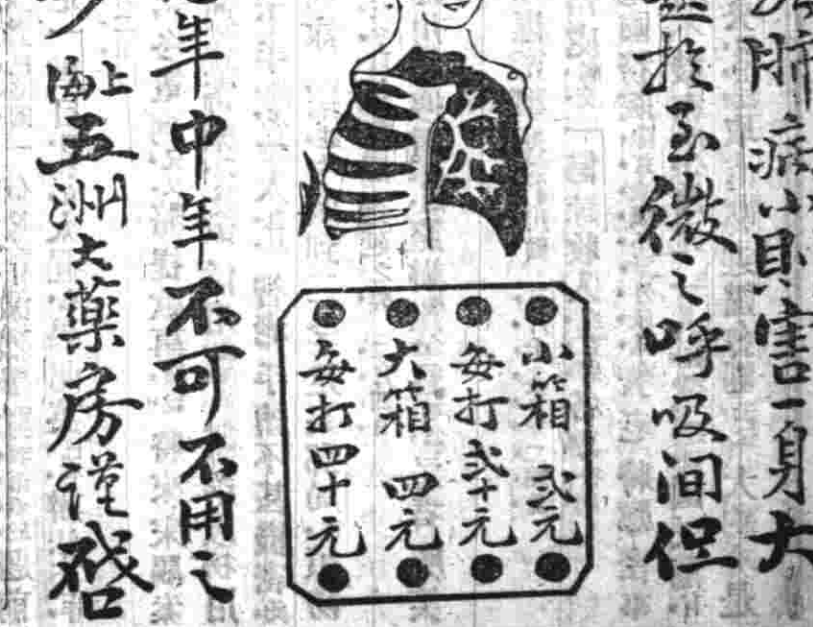 肺病小則害一身大
於至微之呼吸间但
小箱 弍元
每打弍十元
大箱 四元
每打四十元
年中年不可不用之
上海五洲大藥房谨啓